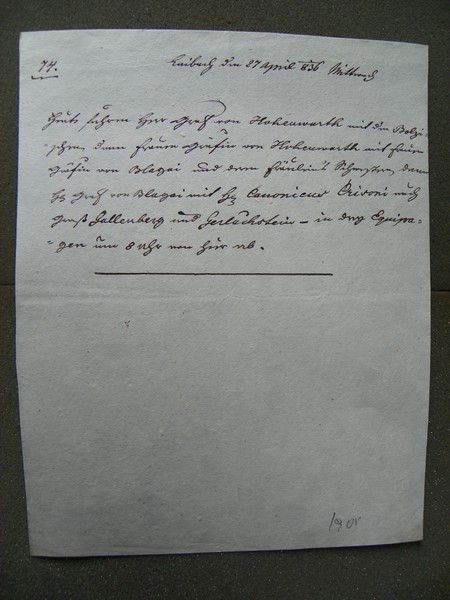 74.
Laibach den 27 April 836 Mittwoch
Heute fuhren Herr Graf von Hohenwarth mit den
dann Frauen Gräfin von Hohenwarth mit
Gräfin von Blagai und dem Fräulein Schwester, dann
H: Graf von Blagai mit H: Canonicus Crisoni nach
Groß Gallenberg und Gerlachstein – in drey Equipa=
=gen um 8 Uhr von hier ab.